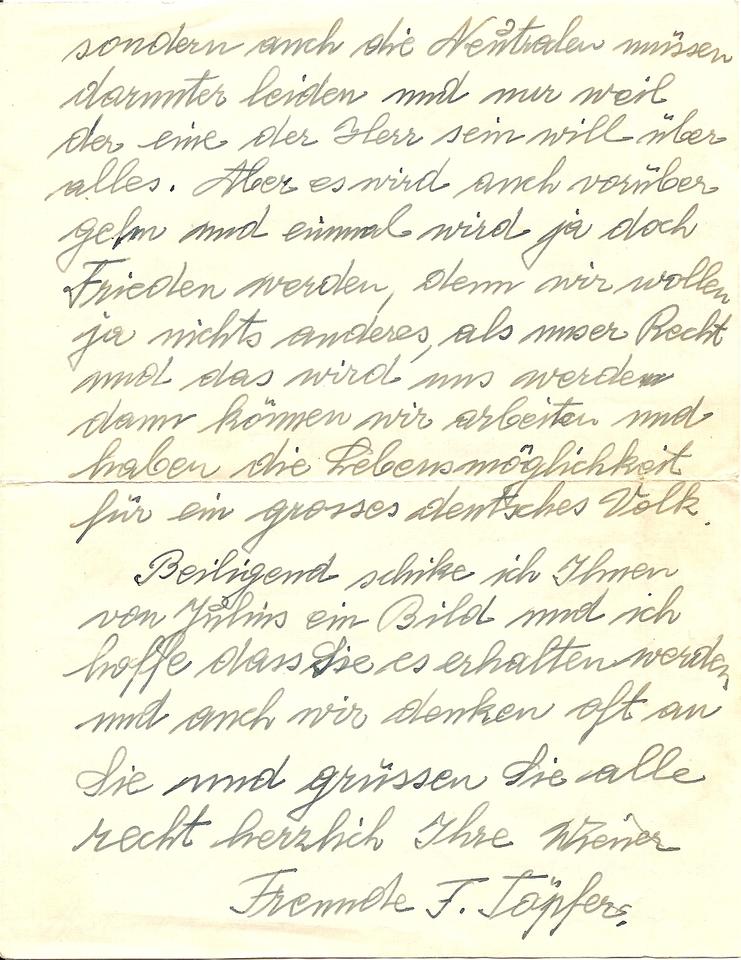 sondern auch die Neutralen müssen
darunter leiden und nur weil
der eine der Herr sein will über
alles. Aber es wird auch vorüber
gehn und einmal wird ja doch
Frieden werden, denn wir wollen
ja nichts anderes, als unser Recht
und das wird uns werden
dann können wir arbeiten und
haben die Lebensmöglichkeit
für ein grosses deutsches Volk.
Beiligend schike ich Ihnen
von Julius ein Bild und ich
hoffe dass Sie es erhalten werden
und auch wir denken oft an
Sie und grüssen Sie alle
recht herzlich Ihre Wiener
Freunde F. Töpfer.